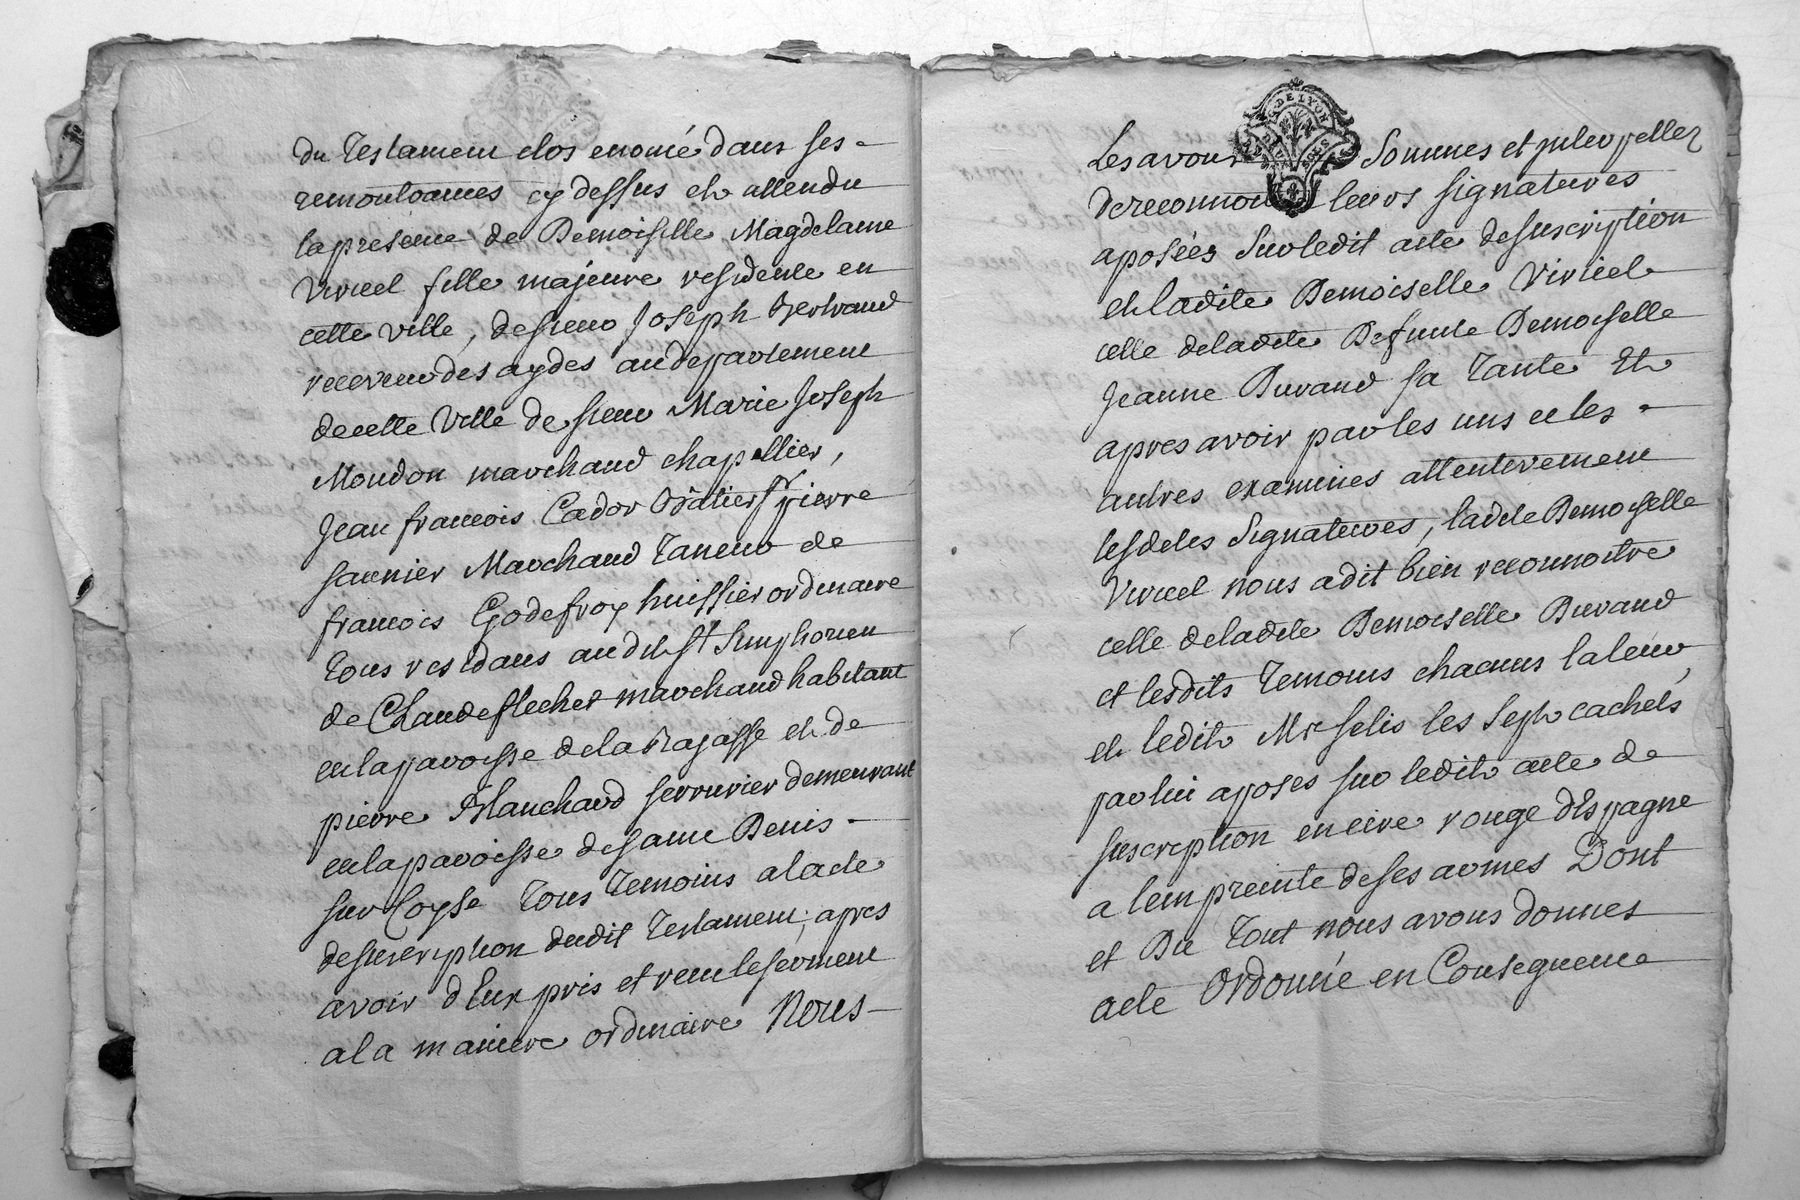 du Testament clos enoncé dans ses
remontrances cy dessus et attendu
la presence de Demoiselle Magdelaine
Viricel fille majeure residente en
cette ville, de sieur Joseph Bertrand
receveur des aydes au departement
de cette Ville de sieur Marie Joseph
Moudon marchand chapellier,
Jean francois Cador Sr pierre
saunier Marchand Taneur de
francois Godefroy huissier ordinaire
tous residans au dit St Simphorien
de Claude flechet marchand habitant
en la paroisse de la Rajasse et de
pierre Blanchard serrurier demeurant
en la paroisse de saint Denis
sur Coyse tous Temoins a lacte
de suscription dudit Testament, apres
avoir d'Eux pris et receu le serment
a la maniere ordinaire Nous
DE LYON
DEUX SOLS
Les avons Sommes et interpellez
de reconnoitre leurs signatures
aposées sur ledit acte de suscription
et ladite Demoiselle Viricel
celle de ladite Defunte Demoiselle
Jeanne Durand sa Tante Et
apres avoir par les uns et les
autres examines attentivement
lesdites Signatures, ladite Demoiselle
Viricel nous a dit bien reconnoitre
celle de ladite Demoiselle Durand
et lesdits Temoins chacuns la leur
et ledit Mr selis les Sept cachets
par lui aposes sur ledit acte de
suscription en cire rouge dEspagne
a lempreinte de ses armes Dont
et Du Tout nous avons donnes
acte Ordonné en Consequence